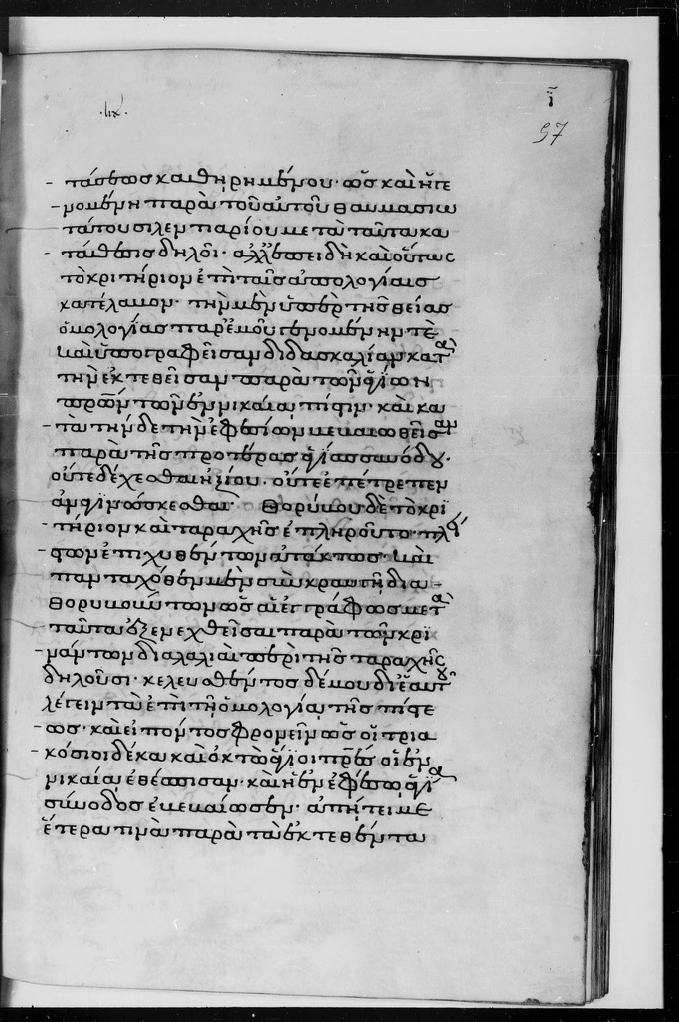 ῑ
97
τάσεως καθηρημένου· ὡς καὶ ἡ γε
νομένη παρὰ τοῦ αὐτοῦ θαυμασιω
τάτου σιλεντιαρίου μετὰ ταῦτα κα
τάθεσις δηλοῖ· ἀλλ᾽ ἐπειδὴ καὶ οὕτως
τὸ κριτήριον ἐπὶ ταῖς ἀπολογίαις
κατέλαβον· τὴν μὲν ὑπὲρ τῆς θείας
ὁμολογίας παρ᾽ ἐμοῦ γενομένην τὲ
καὶ ὑπογραφεῖσαν διδασκαλίαν κατὰ
τὴν ἐκτεθεῖσαν παρὰ τῶν ἁγίων
πρῶν τῶν ἐν νικαίᾳ πίστιν· καὶ κα
τὰ τήνδε τὴν ἐφεσίων βεβαιωθεῖσαν
παρὰ τῆς προτέρας ἁγίας συνόδου·
οὔτε δέχεσθαι ἠξίου· οὔτε ἐπέτρεπεν
ἀναγινώσκεσθαι· Θορύβου δὲ τὸ κρι
τήριον καὶ ταραχῆς ἐπληροῦτο· πλεί
στων ἐπιχυθέντων ἀτάκτως· καὶ
πανταχόθεν μὲν σὺν κραυγῇ δια
θορυβούντων ὡς αἱ ἐγγράφως μετὰ
ταῦτα ἐξενεχθεῖσαι παρὰ τῶν κρι
νάντων διαλαλιαὶ περὶ τῆς ταραχῆς
δηλοῦσι· κελευσθέντος δέ μου δι᾽ ἑαυτοῦ
λέγειν τὰ ἐπὶ τῇ ὁμολογίᾳ τῆς πίστε
ως· καὶ εἰπόντος φρονεῖν ὡς οἱ τρια
κόσιοι δέκα καὶ ὀκτὼ ἅγιοι πρες οἱ ἐν
νικαίᾳ ἐθέσπισαν· καὶ ἡ ἐν ἐφέσῳ ἁγία
σύνοδος ἐβεβαίωσεν· ἀπῄτει με
ἕτερα τινὰ παρὰ τὰ ἐκτεθέντα